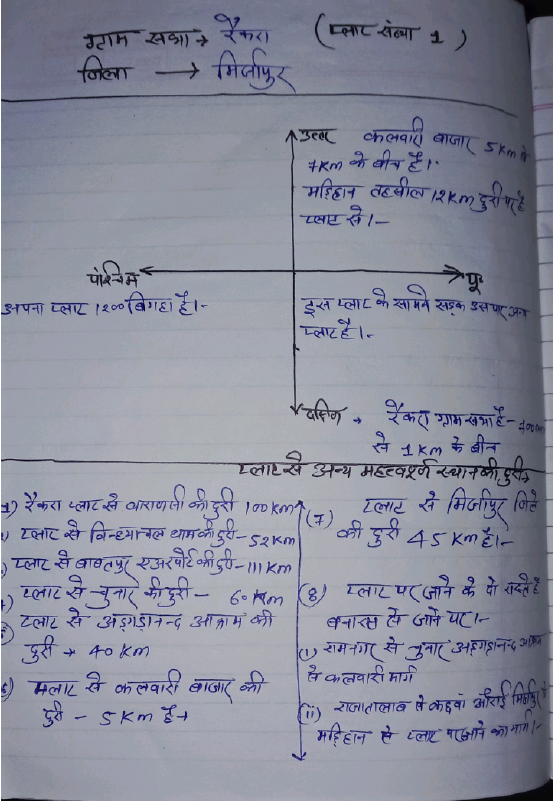 ग्राम सभा → रैकरा ( प्लाट संख्या 1 )
जिला → मिर्जापुर
उत्तर कलवारी बाजार 5 Km से
7 Km के बीच है।
मड़िहान तहसील 12 Km दुरी पर है
प्लाट से।-
पश्चिम
पू
अपना प्लाट 1200 बिगहा है।-
इस प्लाट के सामने सड़क उस पार अन्य
प्लाट है।-
दक्षिण → रैकरा ग्राम सभा है-
से 1 Km के बीच
प्लाट से अन्य महत्वपूर्ण स्थान की दुरी→
1) रैकरा प्लाट से वाराणसी की दुरी 100 Km
प्लाट से विन्ध्याचल धाम की दुरी - 52 Km
प्लाट से बाबतपुर एअरपोर्ट की दुरी - 111 Km
प्लाट से चुनार की दुरी - 60 Km
प्लाट से अड़गड़ानन्द आश्रम की
दुरी → 40 Km
प्लाट से कलवारी बाजार की
दुरी - 5 Km है→
(7) प्लाट से मिर्जापुर जिले
की दुरी 45 Km है।-
(8) प्लाट पर जाने के दो रास्ते है
बनारस से जाने पर।-
(i) रामनगर से चुनार अड़गड़ानन्द आश्रम
से कलवारी मार्ग
(ii) राजातालाब से कछवां औराई मिर्जापुर से
मड़िहान से प्लाट पर जाने का मार्ग।-